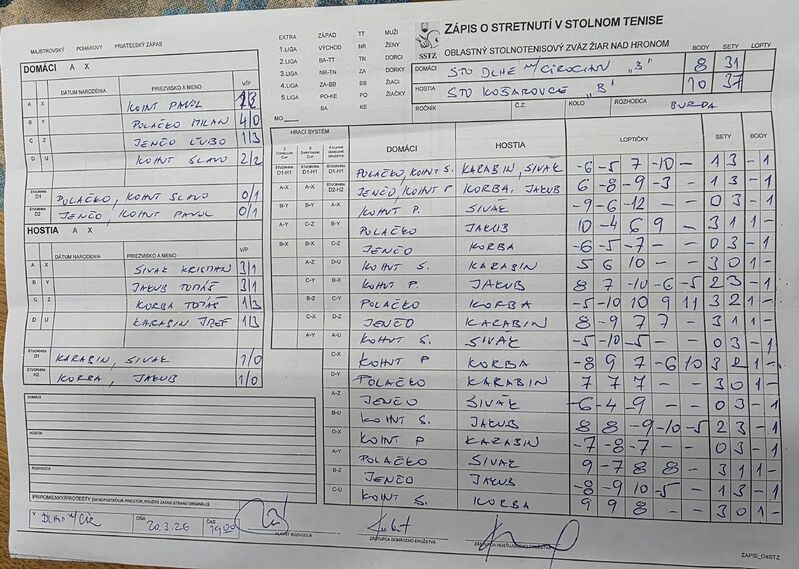 ZÁPIS O STRETNUTÍ V STOLNOM TENISE
OBLASTNÝ STOLNOTENISOVÝ ZVÄZ ŽIAR NAD HRONOM
SSTZ
MAJSTROVSKÝ POHÁROVÝ PRIATEĽSKÝ ZÁPAS
EXTRA ZÁPAD TT MUŽI
1.LIGA VÝCHOD NR ŽENY
2.LIGA BA-TT TN DORCI
3.LIGA NR-TN ZA DORKY
4.LIGA ZA-BB BB ŽIACI
5.LIGA PO-KE PO ŽIAČKY
BA KE
MO
BODY SETY LOPTY
DOMÁCI STO DLHÉ N/CIROCHOU "B" 8 31
HOSTIA STO KOŠAROVCE "B" 10 37
ROČNÍK Č.Z. KOLO ROZHODCA BURDA
DOMÁCI A X
DÁTUM NARODENIA PRIEZVISKO A MENO V/P
A X KOHT PAVOL 1/3
B Y POLAČKO MILAN 4/0
C Z JENČO ĽUBO 1/3
D U KOHT SLAVO 2/2
ŠTVORHRA D1 POLAČKO, KOHT SLAVO 0/1
ŠTVORHRA D2 JENČO, KOHT PAVOL 0/1
HOSTIA A X
DÁTUM NARODENIA PRIEZVISKO A MENO V/P
A X SIVAK KRISTIAN 3/1
B Y JAKUB TOMÁŠ 3/1
C Z KORBA TOMÁŠ 1/3
D U KARABIN JOZEF 1/3
ŠTVORHRA D1 KARABIN, SIVAK 1/0
ŠTVORHRA H2 KORBA, JAKUB 1/0
HRACÍ SYSTÉM DOMÁCI HOSTIA LOPTIČKY SETY BODY
ŠTVORHRA D1-H1 POLAČKO, KOHT S. KARABIN, SIVAK -6 -5 7 -10 - 1 3 - 1
A-X A-X ŠTVORHRA D2-H2 JENČO, KOHT P KORBA, JAKUB 6 -8 -9 -3 - 1 3 - 1
B-Y B-Y A-X KOHT P. SIVAK -9 -6 -12 - - 0 3 - 1
A-Y C-Z B-Y POLAČKO JAKUB 10 -4 6 9 - 3 1 1 -
B-X B-X C-Z JENČO KORBA -6 -5 -7 - - 0 3 - 1
A-Z D-U KOHT S. KARABIN 5 6 10 - - 3 0 1 -
C-Y B-X KOHT P. JAKUB 8 7 -10 -6 -5 2 3 - 1
B-Z C-Y POLAČKO KORBA -5 -10 10 9 11 3 2 1 -
C-X D-Z JENČO KARABIN 8 -9 7 7 - 3 1 1 -
A-Y A-U KOHT S. SIVAK -5 -10 -5 - - 0 3 - 1
C-X KOHT P KORBA -8 9 7 -6 10 3 2 1 -
D-Y POLAČKO KARABIN 7 7 7 - - 3 0 1 -
A-Z JENČO SIVAK -6 -4 -9 - - 0 3 - 1
B-U KOHT S. JAKUB 8 8 -9 -10 -5 2 3 - 1
D-X KOHT P KARABIN -7 -8 -7 - - 0 3 - 1
A-Y POLAČKO SIVAK 9 -7 8 8 - 3 1 1 -
B-Z JENČO JAKUB -8 -9 10 -5 - 1 3 - 1
C-U KOHT S. KORBA 9 9 8 - - 3 0 1 -
DOMÁCI
HOSTIA
ROZHODCA
PRIPOMIENKY/PROTESTY (AK NEPOSTAČUJE PRIESTOR, POUŽITE ZADNÚ STRANU ORIGINÁLU)
V DŇA 20.3.26 ČAS 19:00
HLAVNÝ ROZHODCA
ZÁSTUPCA DOMÁCEHO DRUŽSTVA
ZÁSTUPCA HOSŤUJÚCEHO DRUŽSTVA
ZAPIS_OeSTZ